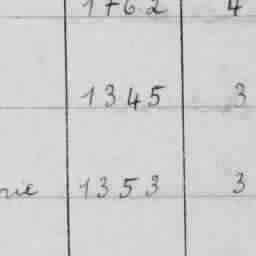 1762 4
1345 3
rie 1353 3